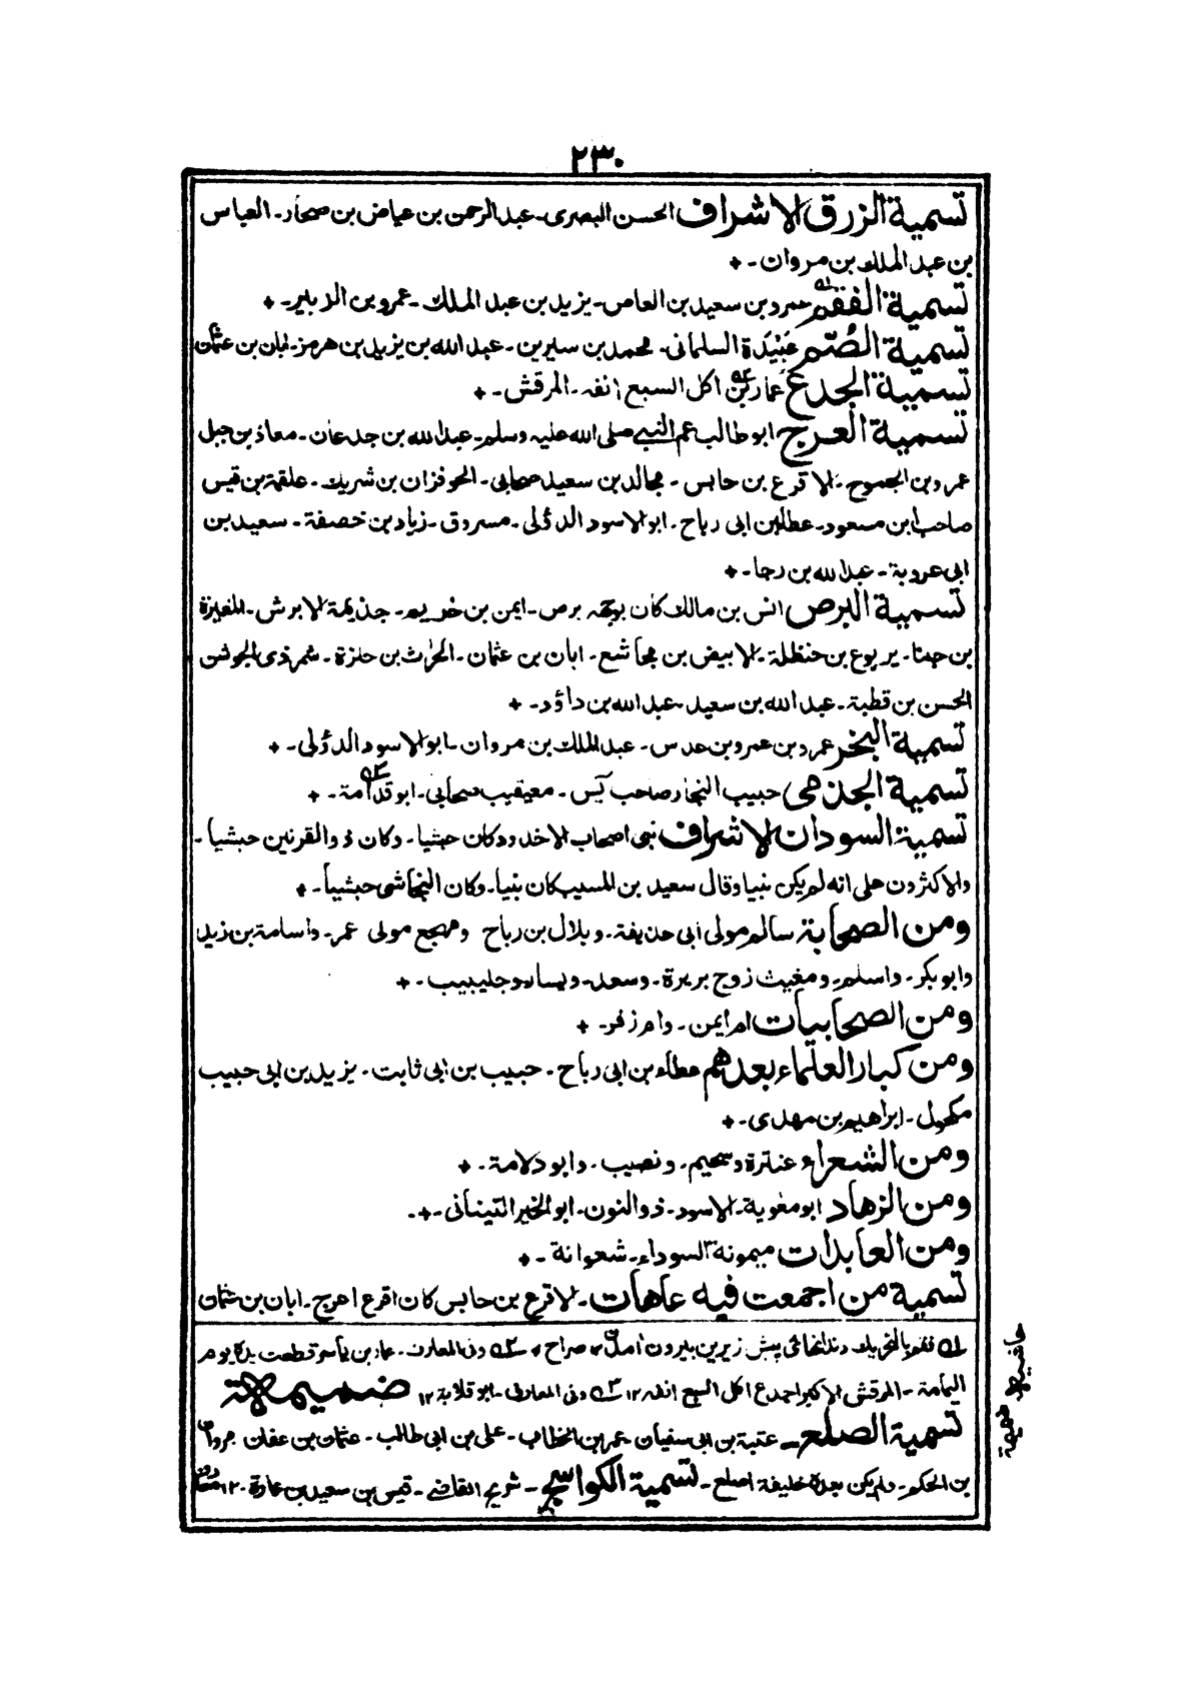 ٢٣٠
تسمية الزرق الاشراف الحسن البصرى۔ عبدالرحمن بن عياض بن صحار۔ العباس
بن عبد الملك بن مروان۔ +
تسمية الفقم ۱ عمرو بن سعيد بن العاص۔ يزيد بن عبد الملك۔ عمرو بن الزبير۔ +
تسمية الصُّم عَبِيْدَة السلمانى۔ محمد بن سيرين۔ عبد الله بن يزيد بن هرمز۔ ابان بن عثمان
تسمية الجدع عمار بن ۲ اكل السبع انفه۔ المرقش۔ +
تسمية العرج ابو طالب عم النبى صلى الله عليه وسلم۔ عبد الله بن جدعان۔ معاذ بن جبل
عمرو بن الجموح۔ الاقرع بن حابس۔ مجالد بن سعيد صحابى۔ الحوفزان بن شريك۔ علقمة بن قيس
صاحب ابن مسعود۔ عطاء بن ابى رباح۔ ابو الاسود الدؤلى۔ مسروق۔ زياد بن خصفة۔ سعيد بن
ابى عروبة۔ عبد الله بن رجا۔ +
تسمية البرص انس بن مالك كان بوجهه برص۔ ايمن بن خريم۔ جذيمة الابرش۔ المغيرة
بن حبنا۔ يربوع بن حنظلة۔ الابيض بن مجاشع۔ ابان بن عثمان۔ الحرٰث بن حلزة۔ شمر ذى الجوشن
الحسن بن قطبة۔ عبد الله بن سعيد۔ عبد الله بن داؤد۔ +
تسمية البخر عمرو بن عمرو بن عدس۔ عبد الملك بن مروان۔ ابو الاسود الدؤلى۔ +
تسمية الجذمى حبيب النجار صاحب يٰس۔ معيقيب صحابى۔ ابو قلامة ۳۔ +
تسمية السودان الاشراف نبى اصحاب الاخدود كان حبشيا۔ وكان ذو القرنين حبشيا۔
والاكثرون على انه لم يكن نبيا وقال سعيد بن المسيب كان نبيا۔ وكان النجاشى حبشياً۔ +
ومن الصحابة سالم مولى ابى حذيفة۔ وبلال بن رباح ومهجع مولى عمر۔ واسامة بن زيد
وابو بكر۔ واسلم۔ ومغيث زوج بريرة۔ وسعد۔ ويسار وجليبيب۔ +
ومن الصحابيات ام ايمن۔ وام زفر۔ +
ومن كبار العلماء بعدهم عطاء بن ابى رباح۔ حبيب بن ابى ثابت۔ يزيد بن ابى حبيب
مكحول۔ ابراهيم بن مهدى۔ +
ومن الشعراء عنترة وسحيم۔ ونصيب۔ وابو دلامة۔ +
ومن الزهاد ابو معٰوية۔ الاسود۔ ذو النون۔ ابو الخير التينانى۔ +۔
ومن العابدات ميمونة السوداء۔ شعوانة۔ +
تسمية من اجمعت فيه عاهات۔ الاقرع بن حابس كان اقرع اعرج۔ ابان بن عثمان
۱ فقم بالتحريك دندانهائى پيش زيرين بيرون آمدن ۱۲ صراح ۱۲ ۲ وفى المعارف۔ عمار بن ياسر قطعت يوم
اليمامة۔ المرقش الاكبر اجدع اكل السبع انفه ۱۲ ۳ وفى المعارف۔ ابو قلابة ۱۲ ضميمة
تسمية الصلع۔ عتبة بن ابى سفيان عمر بن الخطاب۔ على بن ابى طالب۔ عثمان بن عفان مروان
بن الحكم۔ ولم يكن بعده خليفة اصلع۔ تسمية الكواسج۔ شريح القاضى۔ قيس بن سعيد بن عبادة۔ ۱۲ معارف
حاشيه ضميمة